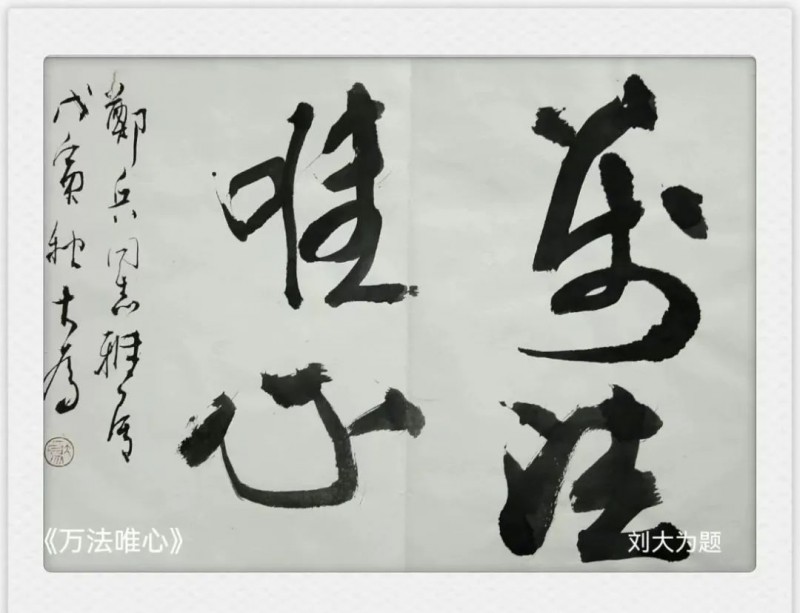 萬法
唯心
鄭兵同志雅屬
戊寅秋大為
《万法唯心》
刘大为题